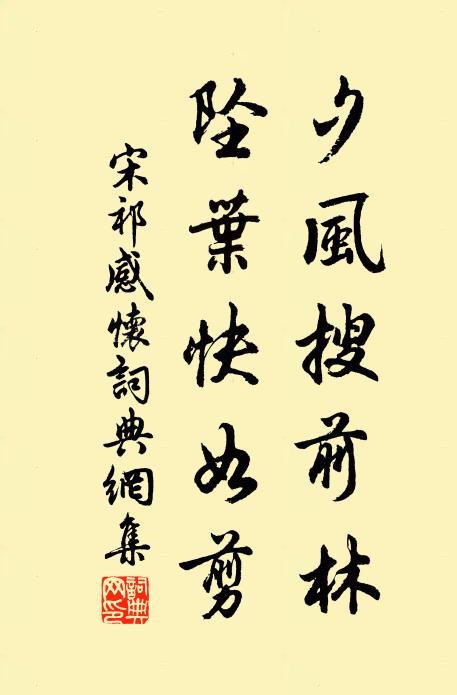 夕風搜前林
坠葉快如剪
宋祁感懷詞典網集
詞典網印